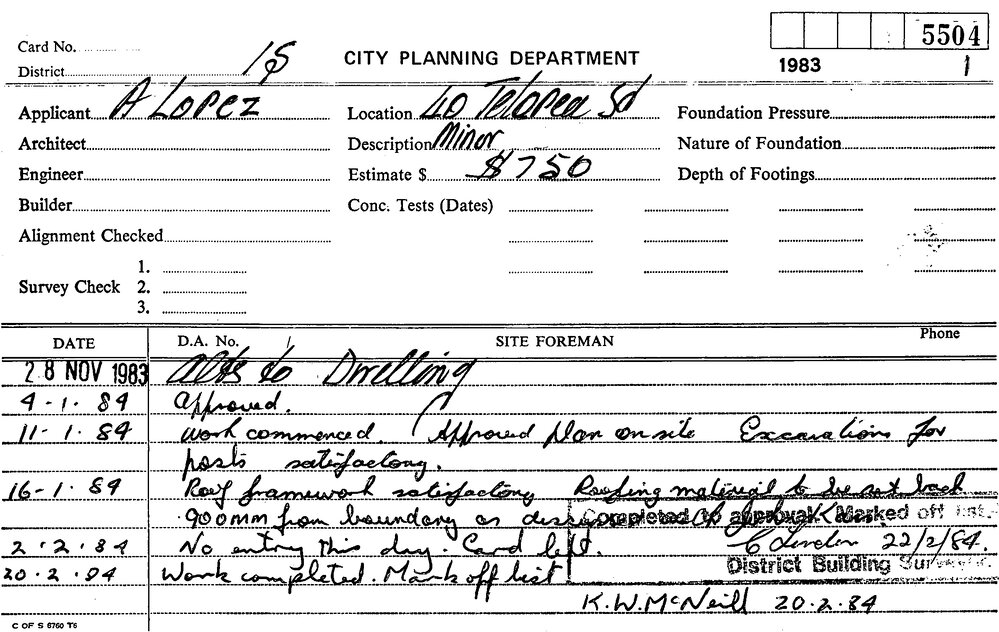 5504
Card No.
CITY PLANNING DEPARTMENT
District 15
1983
1
Applicant A Lopez
Location 40 Telopea Sd
Foundation Pressure
Architect
Description Minor
Nature of Foundation
Engineer
Estimate $ $750
Depth of Footings
Builder
Conc. Tests (Dates)
Alignment Checked
1.
Survey Check 2.
3.
DATE D.A. No. SITE FOREMAN Phone
28 NOV 1983 Alts to Dwelling
4-1-84 Approved.
11-1-84 Work commenced. Approved plan on site Excavations for
posts satisfactory.
16-1-84 Roof framework satisfactory Roofing material to be set back
900mm from boundary as
Completed to approval. Marked off list.
2.2.84 No entry this day. Card left.
22/2/84.
20.2.84 Work completed. Mark off list
District Building Surveyor.
K.W.McNeill 20.2.84
C OF S 6760 T5